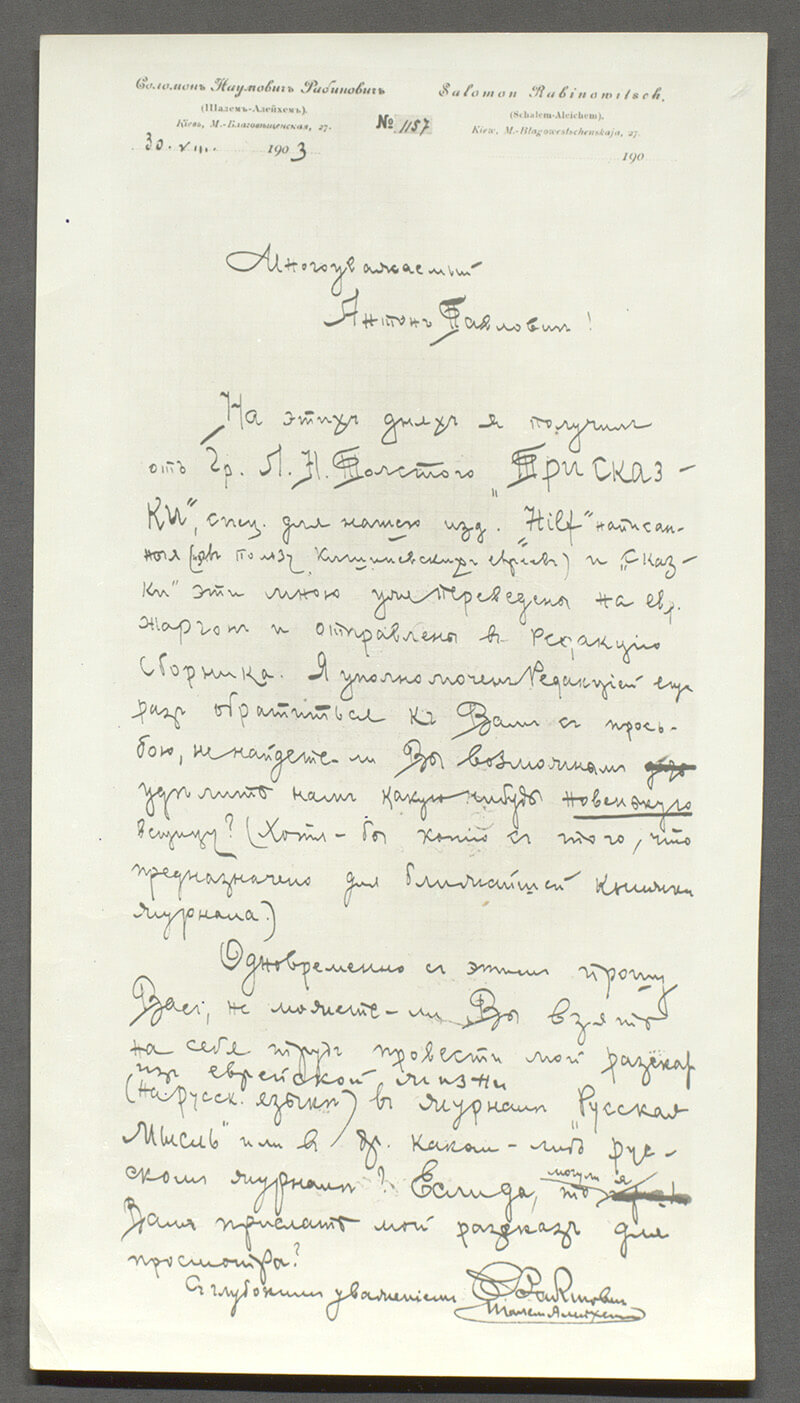 Соломонъ Наумовичъ Рабиновичъ
(Шалемъ-Алейхемъ).
Кіевъ, М.-Благовѣщенская, 27.
30. VII. 1903
№ 1157
Salomon Rabinowitsch.
(Schalem-Aleichem).
Kiew, M.-Błagowestschenskaja, 27.
190
Многоуважаемый
Антонъ Павловичъ!
На этихъ дняхъ я получилъ
отъ Гр. Л. Н. Толстого „Три сказ-
ки", спец. для нашего изд. „Hilf" написан-
ныя (въ пользу Кишиневскихъ евреевъ) и „сказ-
ки" эти мною уже переведены на евр.
жаргонъ и отправлены въ редакцію
Сборника. Я уполномоченъ Редакціей еще
разъ обратиться къ Вамъ съ прось-
бою, не найдете-ли Вы возможнымъ
удѣлить намъ какую нибудь новенькую
вещицу? (Хотя-бы копію съ того, что
предназначено для ближайшей книжки
журнала.)
Одновременно съ этимъ прошу
Васъ, не можете-ли Вы взять
на себя трудъ провести мой разсказъ
изъ еврейской жизни
(на русск. языкѣ) въ журналѣ „Русская
Мысль" или въ др. какомъ-либо рус-
скомъ журналѣ? Если да, то могу-ли я
Вамъ прислать мой разсказъ для
просмотра?
Съ глубокимъ уваженіемъ С Рабинович
Шалем Алейхем